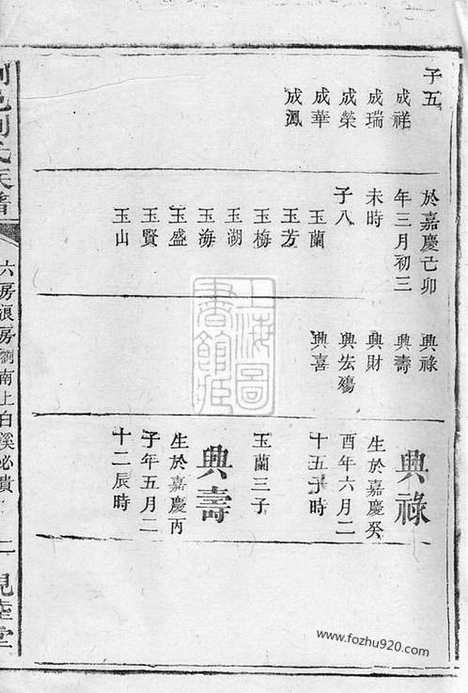 子五
成祥
成瑞
成榮
成華
成鳳
於嘉慶己卯
年三月初三
未時
子八
玉蘭
玉芳
玉梅
玉湖
玉海
玉盛
玉賢
玉山
典祿
典壽
典財
典宏殤
典喜
典祿
生於嘉慶癸
酉年六月二
十五子時
玉蘭三子
典壽
生於嘉慶丙
子年五月二
十二辰時
氏族譜
六房 房 南上白溪必貴
二
堂
上海圖書館藏
www.fozhu920.com